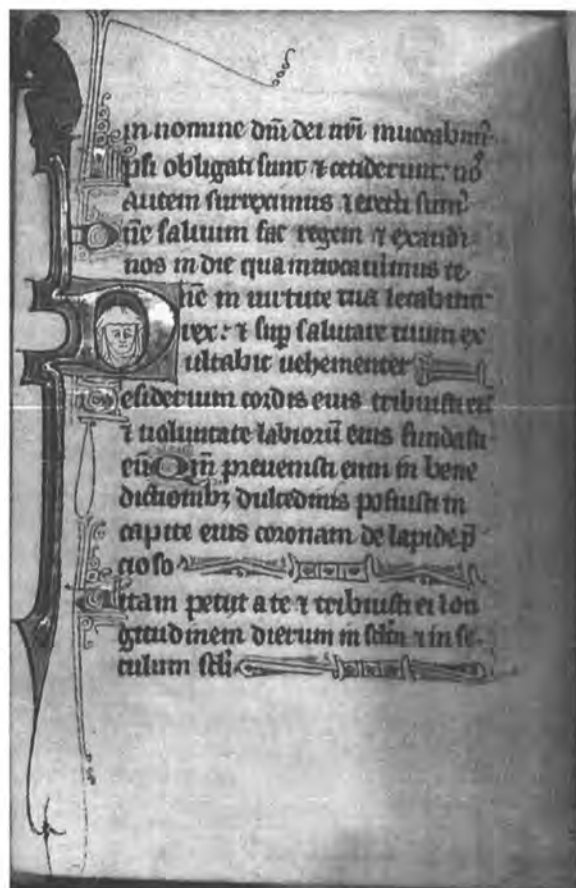 in nomine dn̄i dei nr̄i inuocabim᷒
Ipsi obligati sunt ⁊ ceciderunt: nos
autem surreximus ⁊ erecti sum᷒
Dn̄e saluum fac regem ⁊ exaudi
nos in die qua inuocauimus te
Dn̄e in uirtute tua letabitur
rex: ⁊ sup̄ salutare tuum ex
ultabit uehementer
Desiderium cordis eius tribuisti ei
⁊ uoluntate labiorū eius
eū Qm̄ preuenisti eum in bene
dictionibꝫ dulcedinis posuisti in
capite eius coronam de lapide p̄
cioso
Uitam petiit a te ⁊ tribuisti ei lon
gitudinem dierum in scl̄m ⁊ in se
culum scl̄i